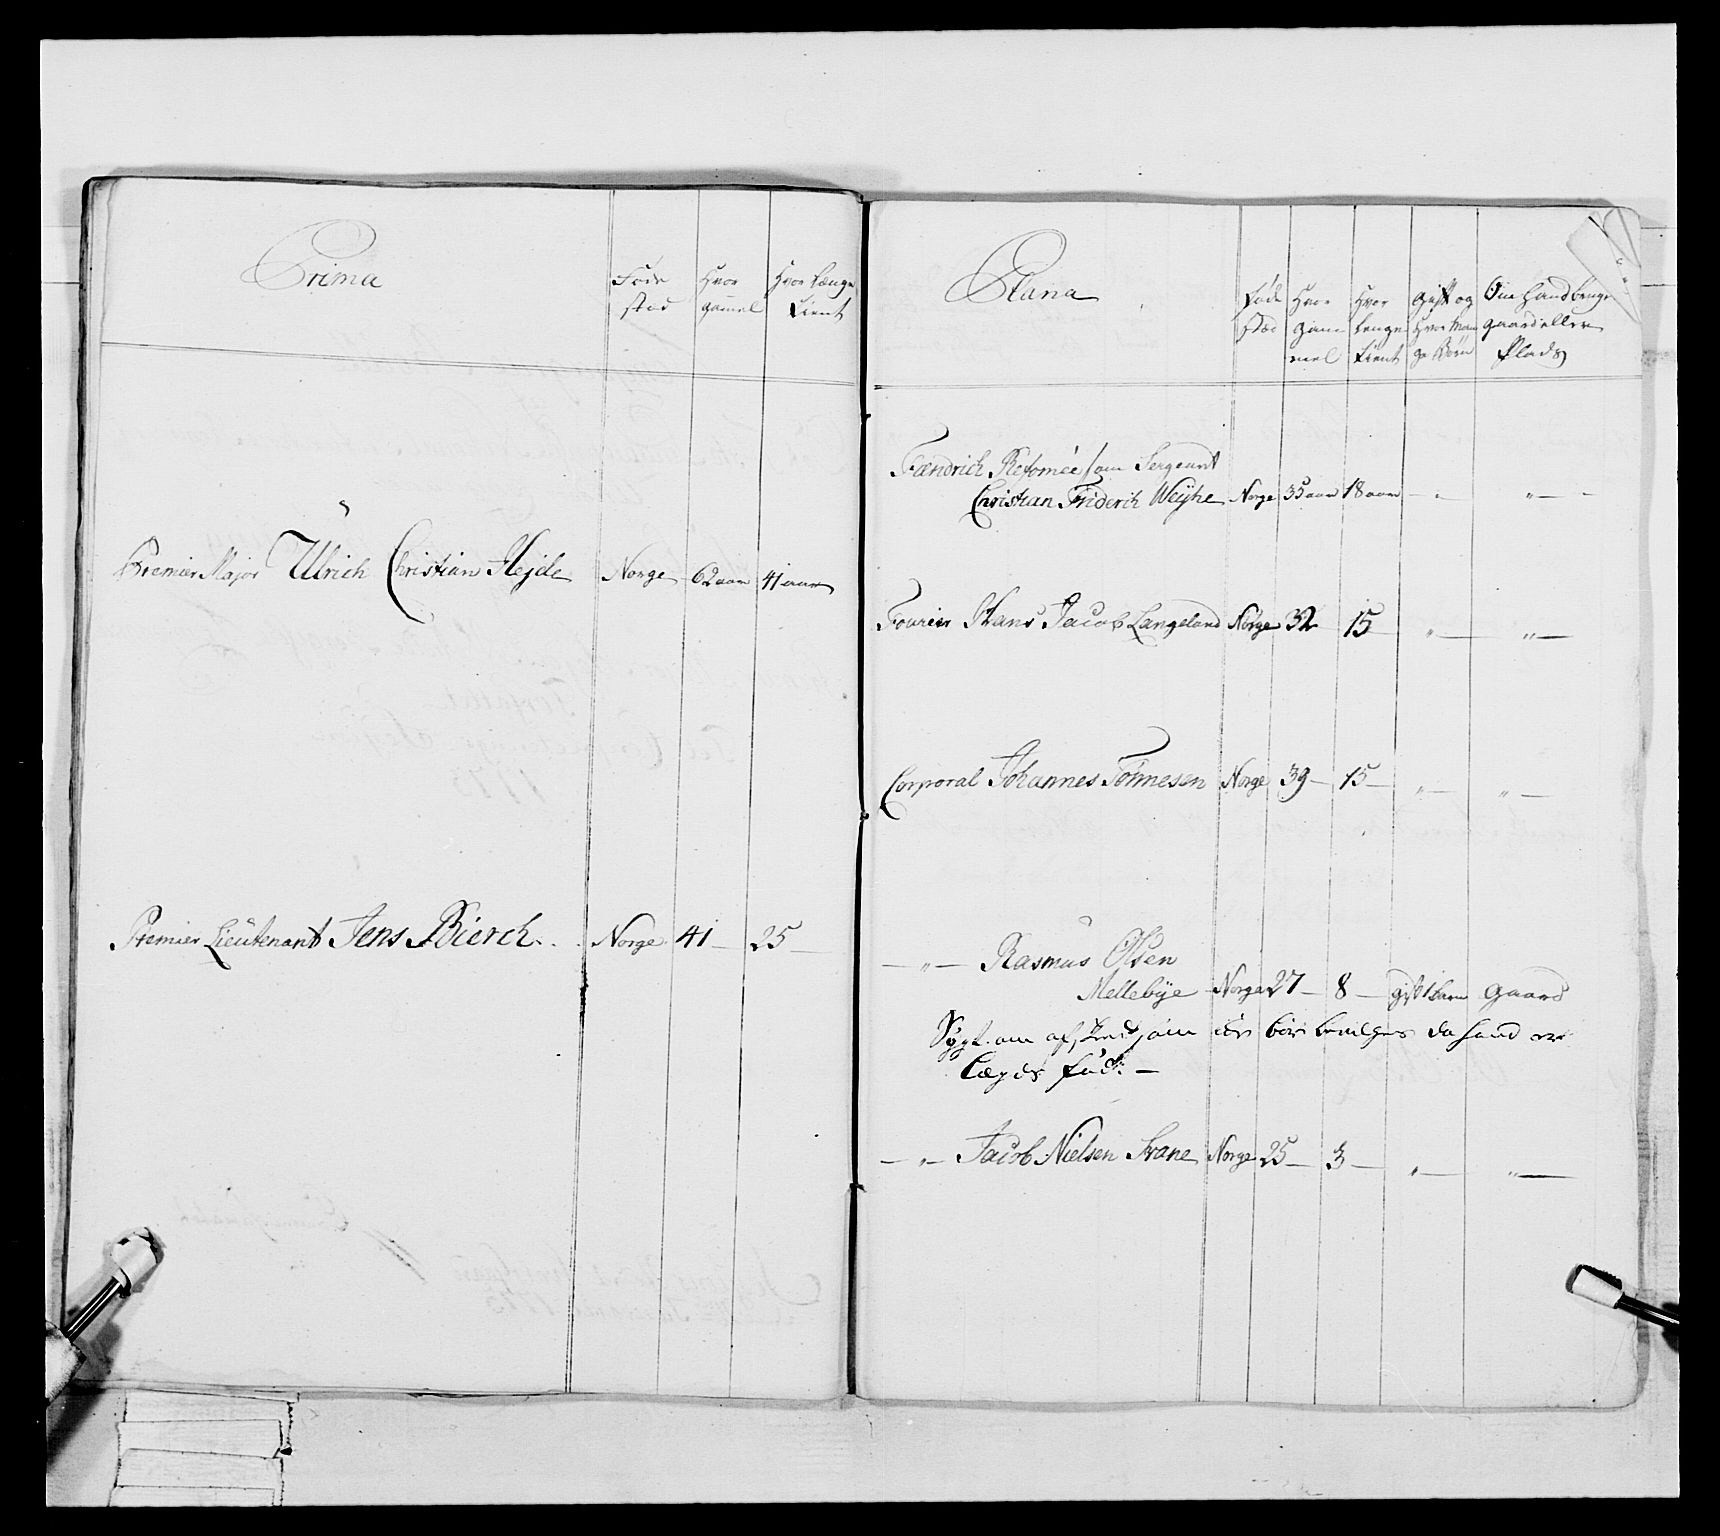 Prima
Føde
stad
Hvor
gammel
Hvor længe
tient
Premier Major Ulrich Christian Hejde Norge 62 aar 41 aar
Premier Lieutenant Jens Bierch Norge 41 — 25 —
Plana
Føde
stæd
Hvor
gam
mel
Hvor
lenge
tient
gift og
Hvor Man
ge Børn
Om hand bruger
gaard eller
Plads
Fændrich Refomée som Sergeant
Christian Friderich Weyhe Norge 35 aar 18 aar — " — " —
Fourier Hans Jacob Langeland Norge 32 15 — " — " —
Corporal Johannes Tønnesen Norge 39 — 15 — " — " —
— " — Rasmus Olsen
Mellebye Norge 27 — 8 — gift 1 barn gaard
om afskeed, som bør bevilges da hand er
Lægds fød: —
— " — Jacob Nielsen Svane Norge 25 — 3 — " — " —